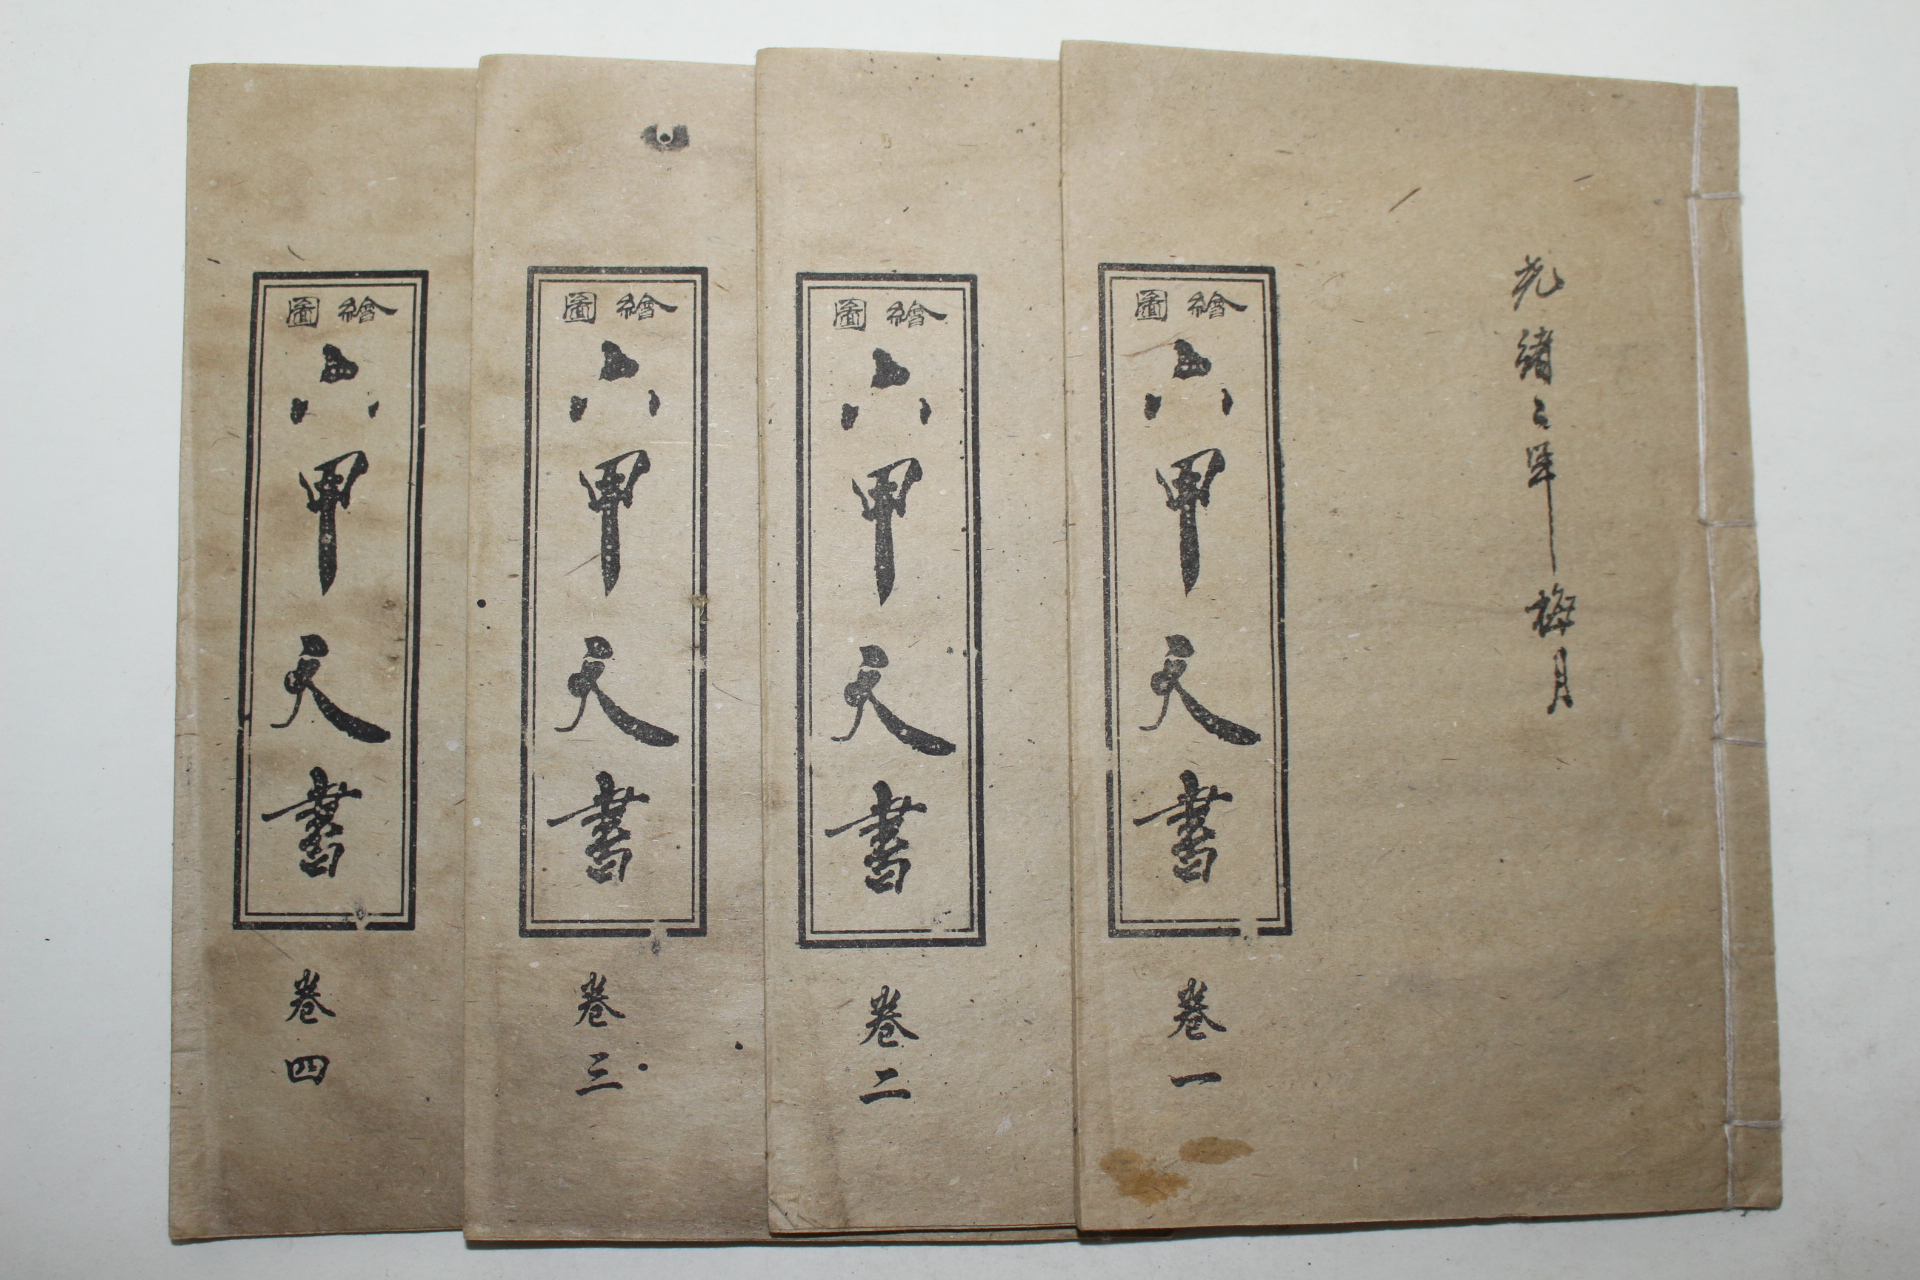 光緒二年梅月
繪圖
六甲天書
卷一
繪圖
六甲天書
卷二
繪圖
六甲天書
卷三
繪圖
六甲天書
卷四